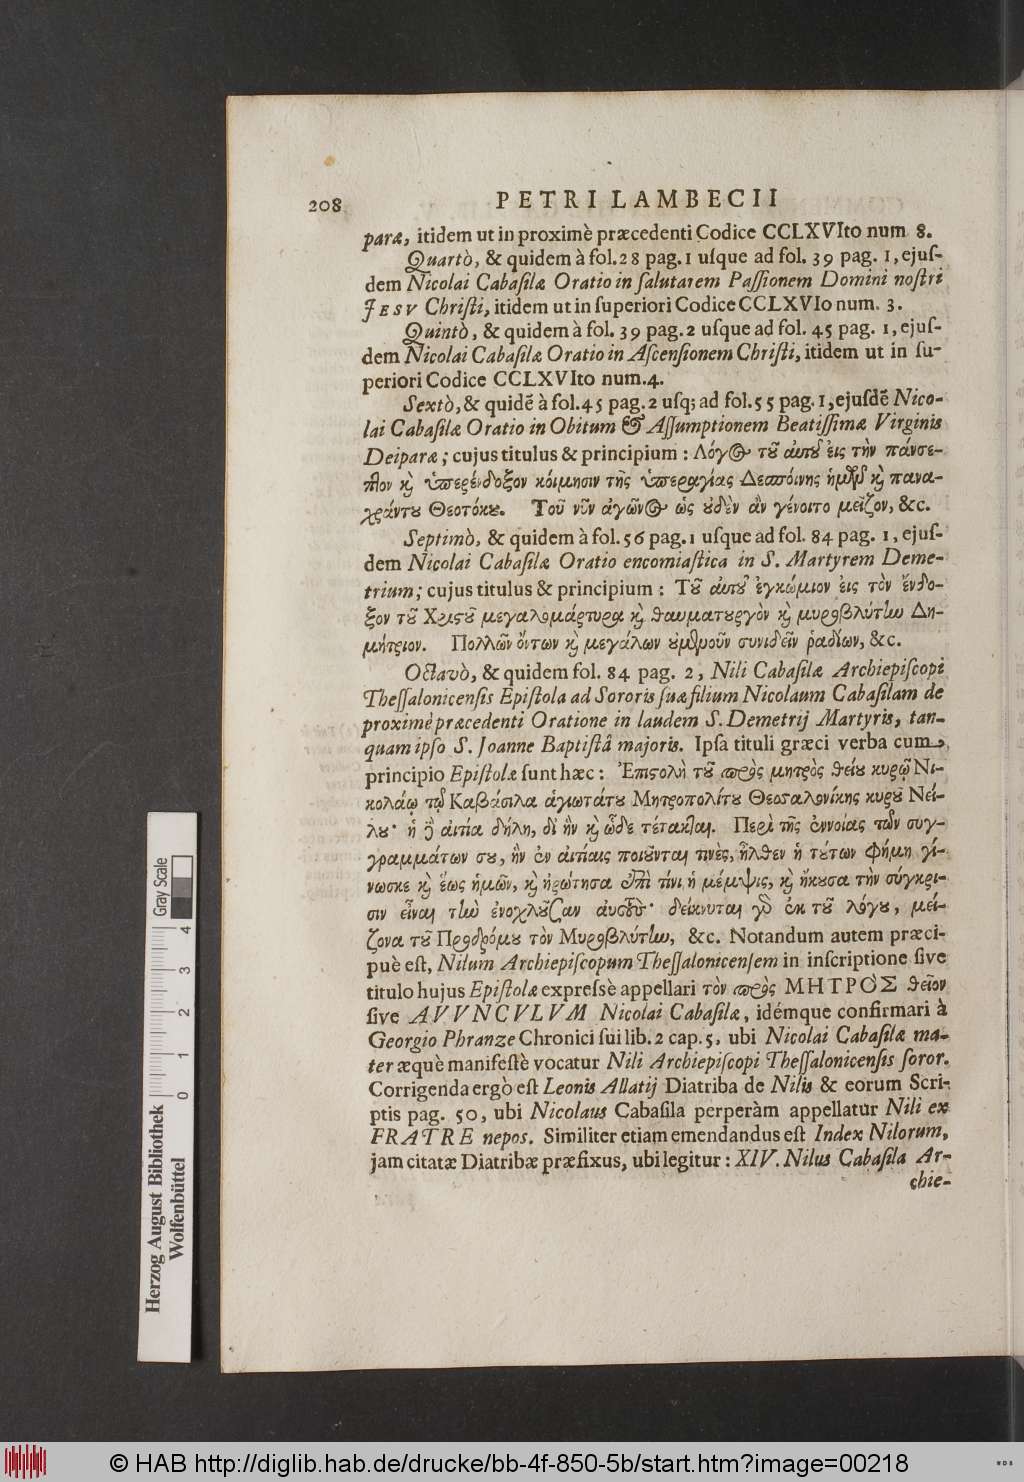 208 PETRI LAMBECII
paræ, itidem ut in proximè præcedenti Codice CCLXVIto num 8.
Quartò, & quidem à fol. 28 pag. 1 uſque ad fol. 39 pag. 1, ejuſ-
dem Nicolai Cabaſilæ Oratio in ſalutarem Paſſionem Domini noſtri
JESV Chriſti, itidem ut in ſuperiori Codice CCLXVIo num. 3.
Quintò, & quidem à fol. 39 pag. 2 uſque ad fol. 45 pag. 1, ejuſ-
dem Nicolai Cabaſilæ Oratio in Aſcenſionem Chriſti, itidem ut in ſu-
periori Codice CCLXVIto num. 4.
Sextò, & quidẽ à fol. 45 pag. 2 uſq; ad fol. 55 pag. 1, ejuſdẽ Nico-
lai Cabaſilæ Oratio in Obitum & Aſſumptionem Beatiſſimæ Virginis
Deiparæ; cujus titulus & principium: Λόγος τοῦ αὐτοῦ εἰς τὴν πάνσε-
πτον καὶ ὑπερένδοξον κόιμησιν τῆς ὑπεραγίας Δεσποίνης ἡμῶν καὶ πανα-
χράντου Θεοτόκου. Τοῦ νῦν ἀγῶνος ὡς οὐδὲν ἂν γένοιτο μεῖζον, &c.
Septimò, & quidem à fol. 56 pag. 1 uſque ad fol. 84 pag. 1, ejuſ-
dem Nicolai Cabaſilæ Oratio encomiaſtica in S. Martyrem Deme-
trium; cujus titulus & principium: Τοῦ αὐτοῦ ἐγκώμιον εἰς τὸν ἔνδο-
ξον τοῦ Χριστοῦ μεγαλομάρτυρα καὶ θαυματουργὸν καὶ μυροβλύτην Δη-
μήτριον. Πολλῶν ὄντων καὶ μεγάλων οὑμενοῦν συνιδεῖν ῥαδίων, &c.
Octavò, & quidem fol. 84 pag. 2, Nili Cabaſilæ Archiepiſcopi
Theſſalonicenſis Epiſtola ad Sororis ſuæ filium Nicolaum Cabaſilam de
proximè præcedenti Oratione in laudem S. Demetrij Martyris, tan-
quam ipſo S. Joanne Baptiſtâ majoris. Ipſa tituli græci verba cum
principio Epiſtolæ ſunt hæc: Ἐπιστολὴ τοῦ πρὸς μητρὸς θείου κυρῷ Νι-
κολάῳ τῷ Καβάσιλα ἁγιωτάτου Μητροπολίτου Θεσσαλονίκης κυροῦ Νεί-
λου· ἡ δὲ αἰτία δήλη, δι ἣν καὶ ὧδε τέτακται. Περὶ τῆς ἐννοίας τῶν συγ-
γραμμάτων σου, ἣν ἐν αἰτίαις ποιοῦνται τινὲς, ἦλθεν ἡ τούτων φήμη γί-
νωσκε καὶ ἕως ἡμῶν, καὶ ἠρώτησα ἐπὶ τίνι ἡ μέμψις, καὶ ἤκουσα τὴν σύγκρι-
σιν εἶναι τὴν ἐνοχλοῦσαν αὐτούς· δείκνυται γὰρ ἐκ τοῦ λόγου, μεί-
ζονα τοῦ Προδρόμου τὸν Μυροβλύτην, &c. Notandum autem præci-
puè eſt, Nilum Archiepiſcopum Theſſalonicenſem in inſcriptione ſive
titulo hujus Epiſtolæ expreſsè appellari τὸν πρὸς ΜΗΤΡῸΣ θεῖον
ſive AVVNCVLVM Nicolai Cabaſilæ, idémque confirmari à
Georgio Phranze Chronici ſui lib. 2 cap. 5, ubi Nicolai Cabaſilæ ma-
ter æquè manifeſtè vocatur Nili Archiepiſcopi Theſſalonicenſis ſoror.
Corrigenda ergò eſt Leonis Allatij Diatriba de Nilis & eorum Scri-
ptis pag. 50, ubi Nicolaus Cabaſila perperàm appellatur Nili ex
FRATRE nepos. Similiter etiam emendandus eſt Index Nilorum,
jam citatæ Diatribæ præfixus, ubi legitur: XIV. Nilus Cabaſila Ar-
chie-
Herzog August Bibliothek
Wolfenbüttel
0 1 2 3 4
Gray Scale
© HAB http://diglib.hab.de/drucke/bb-4f-850-5b/start.htm?image=00218